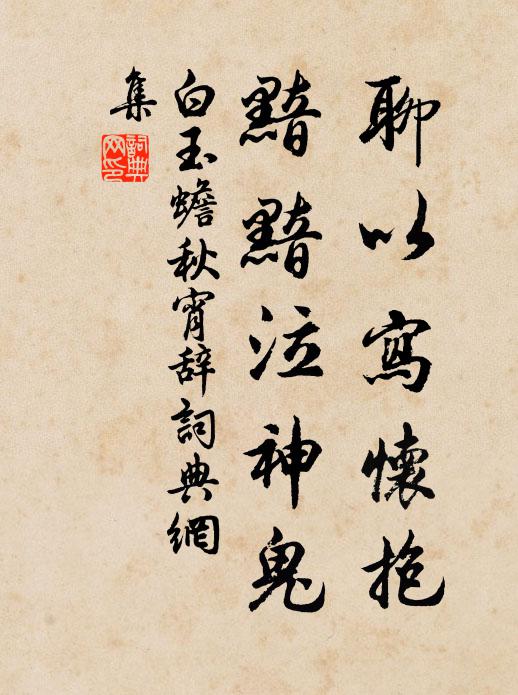 聊以寫懷抱
黯黯泣神鬼
白玉蟾秋宵辞詞典網
集
詞典
网印